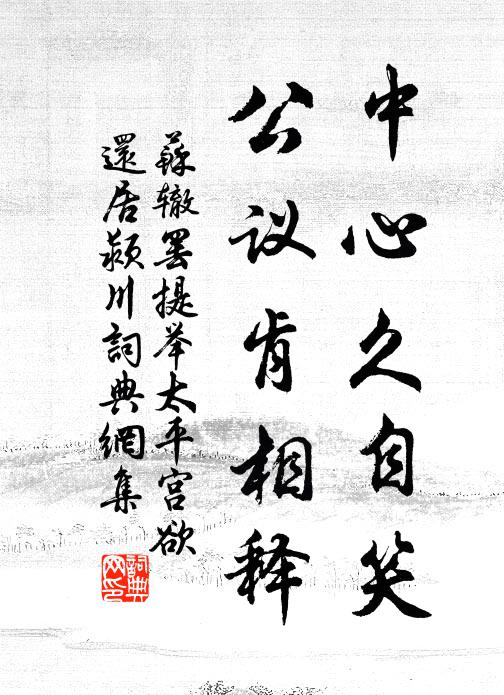 中心久自笑
公议肯相释
蘇辙罢提举太平宫欲
還居颍川詞典網集
詞典
网印